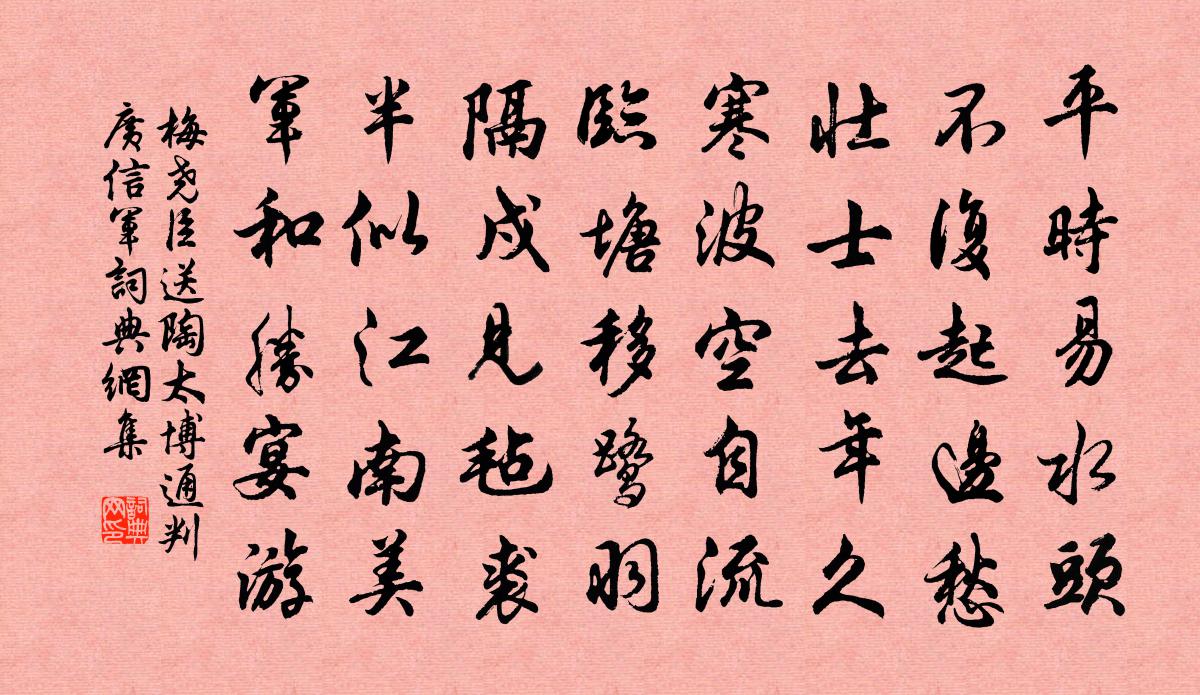 平時易水頭
不復起邊愁
壯士去年久
寒波空自流
臨塘移鷺羽
隔戍見毡裘
半似江南美
軍和勝宴游
梅堯臣送陶太博通判
廣信軍詞典網集
詞典網印